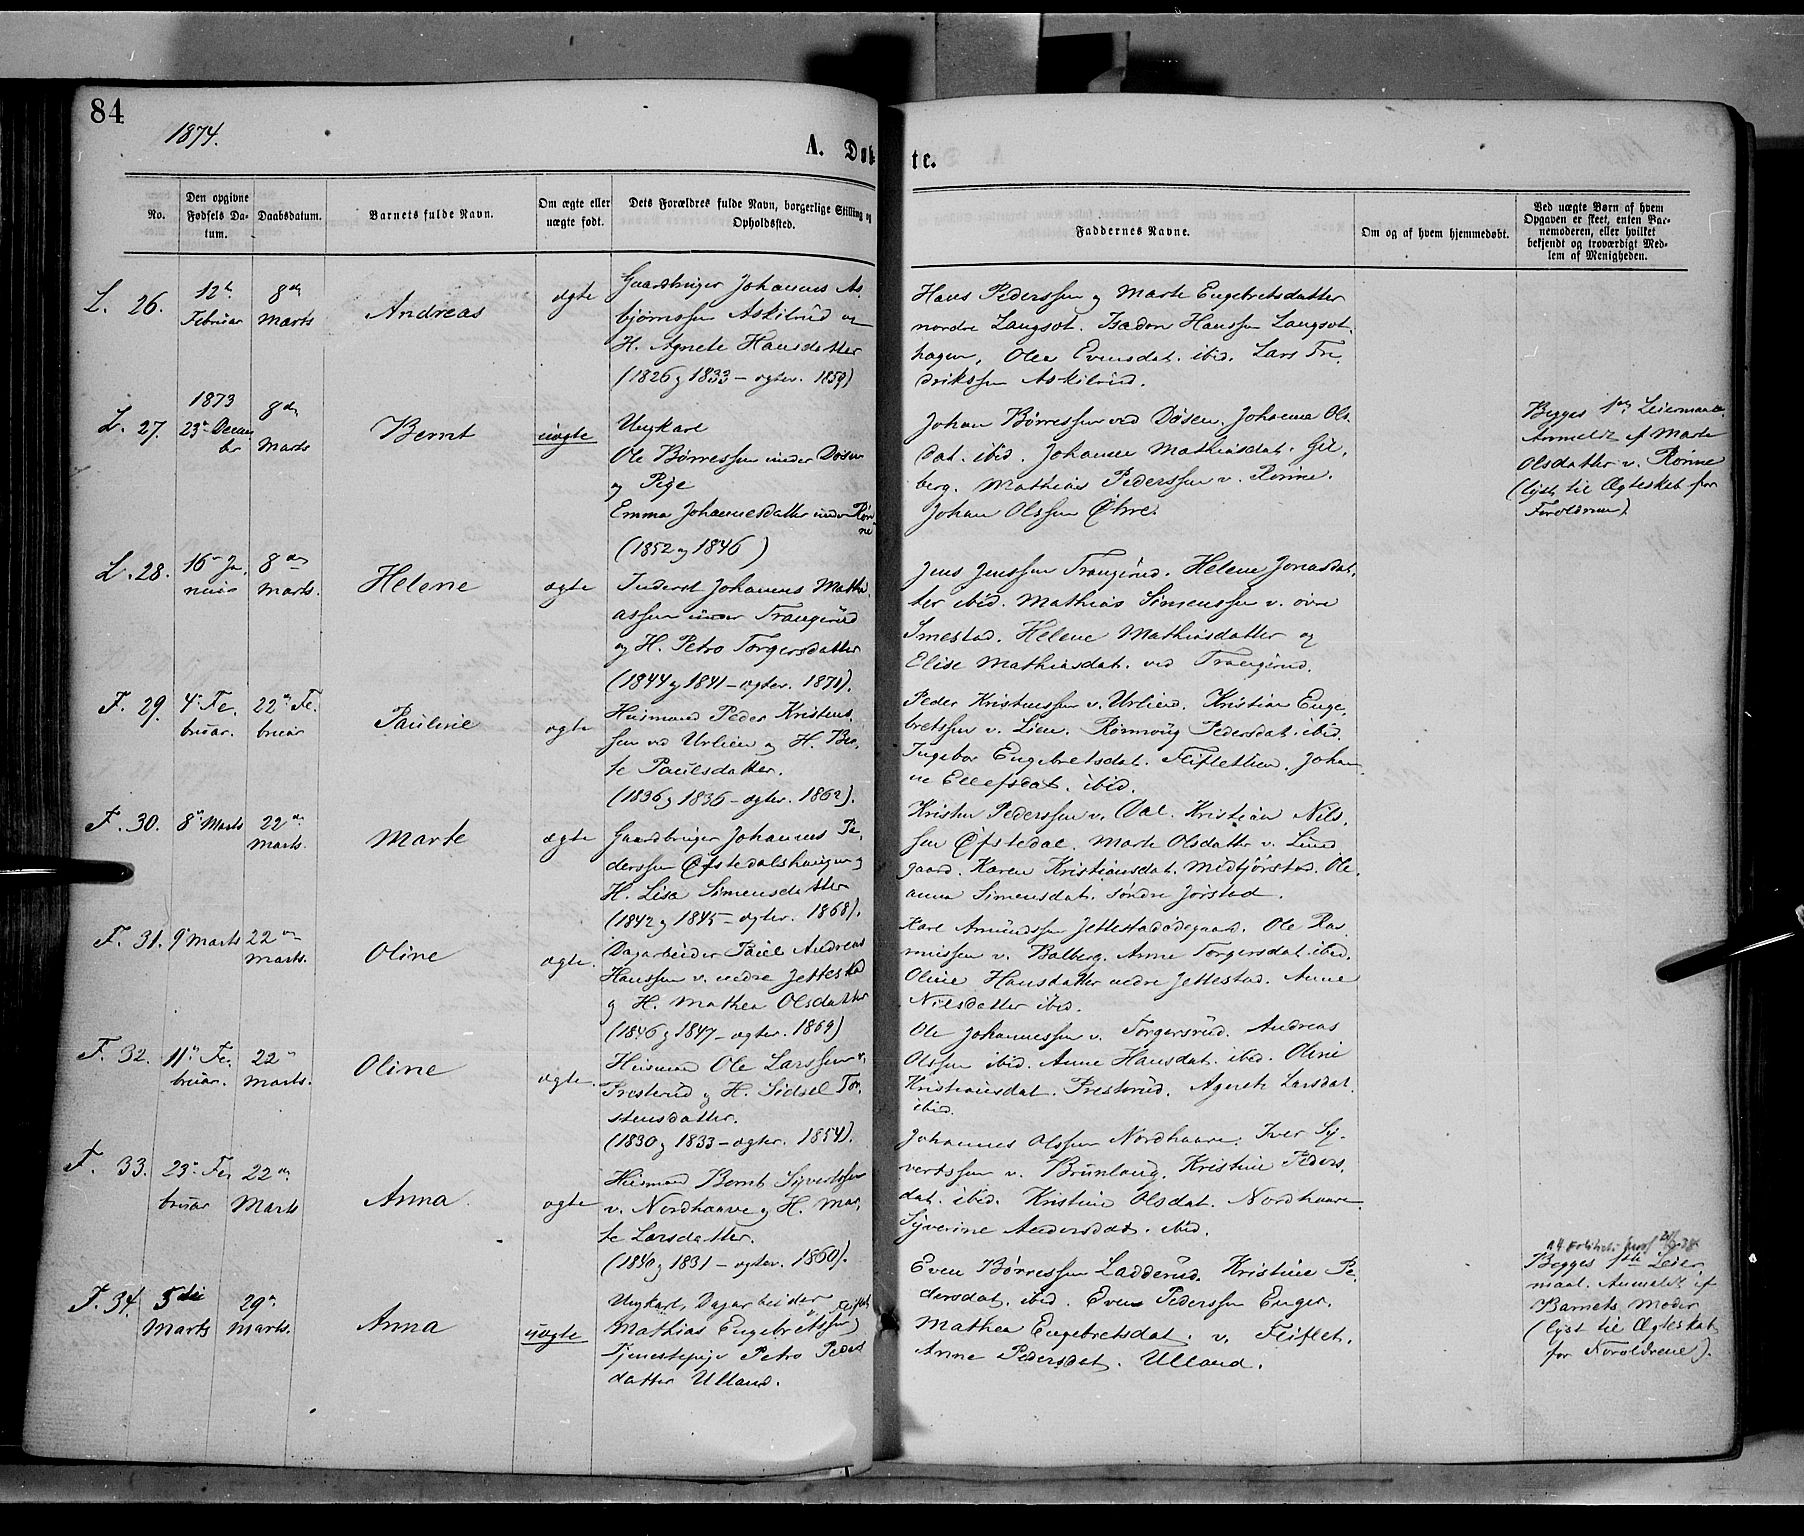 84
1874.
A. Døbte.
No.
Den opgivne Fødsels Da-
tum.
Daabsdatum.
Barnets fulde Navn.
Om ægte eller
uægte født.
Dets Forældres fulde Navn, borgerlige Stilling og
Opholdssted.
Faddernes Navne.
Om og af hvem hjemmedøbt.
Ved uægte Børn af hvem
Opgaven er skeet, enten Bar-
nemoderen, eller hvilket
bekjendt og troværdigt Med-
lem af Menigheden.
L. 26.
12te
Februar
8de
Marts
Andreas
ægte
Gaardbruger Johannes As-
bjørnssen Askilrud og
H. Agnete Hansdatter
(1826 og 1833 – ægtev. 1859)
Hans Pederssen og Marte Engebretsdatter
nordre Langsvt. Isedor Hanssen Langsvt-
hagen, Olea Evensdat. ibid. Lars Fre-
drikssen Askilrud.
L. 27.
1873
23de Decem-
br
8de
Marts
Bernt
uægte
Ungkarl
Ole Børressen under Døsen
og Pige
Emma Johannesdatter under Røn-
ne
(1852 og 1846)
Johan Børressen ved Døsen. Johanna Ols-
dat. ibid. Johanne Mathiasdat. Gil-
berg. Mathias Pederssen v. Rønne.
Johan Olssen Øhre.
Begges 1ste Leiermaal.
Anmeldt af Marte
Olsdatter v. Rønne
(lyst til Ægteskab for
Forældrene).
L. 28.
16de Ja-
nuar
8de
Marts.
Helene
ægte
Inderst Johannes Mathi-
assen under Trangsrud
og H. Petro Torgersdatter
(1844 og 1841 – ægtev. 1871).
Jens Jenssen Trangsrud. Helene Jonasdat-
ter ibid. Mathias Simenssen v. øvre
Smestad. Helene Mathiasdatter og
Elise Mathiasdat. ved Trangsrud.
F. 29.
4de Fe-
bruar.
22de Fe-
bruar
Pauline
ægte
Husmand Peder Kristens-
sen ved Urlien og H. Ber-
te Paulsdatter.
(1836 og 1836 – ægtev. 1862).
Peder Kristenssen v. Urlien. Kristian Enge-
bretssen v. Lien. Rønnoug Pedersdat. ibid.
Ingebor Engebretsdat. Flifletlien. Johan-
ne Ellefsdat. ibid.
F. 30.
8de Marts
22de
Marts.
Marte
ægte
Gaardbruger Johannes Pe-
derssen Øfstedalshaugen og
H. Lisa Simensdatter
(1842 og 1845 – ægtev. 1868).
Kristen Pederssen v. Dal. Kristian Nils-
sen Øfstedal. Marte Olsdatter v. Lund-
gaard. Karen Kristiansdat. Midtjørstad. Ole-
anna Simensdat. søndre Jørstad.
F. 31.
9de Marts
22de
Marts.
Oline
ægte.
Dagarbeider Paul Andreas
Hanssen v. nedre Jettestad
og H. Mathea Olsdatter
(1846 og 1847 – ægtev. 1869)
Karl Amundssen Jettestadødegaard. Ole Ras-
mussen v. Balberg. Anne Torgersdat. ibid.
Oline Hansdatter nedre Jettestad. Anne
Nilsdatter ibid.
F. 32.
11te Fe-
bruar.
22de
Marts.
Oline
ægte.
Husmand Ole Larssen v.
Presterud og H. Sidsel Tor-
stensdatter.
(1830 og 1833 – ægtev. 1854).
Ole Johannessen v. Torgersrud. Andreas
Olssen ibid. Anne Hansdat. ibid. Oline
Kristiansdat. Presterud. Agnete Larsdat.
ibid.
F. 33.
23de Fe-
bruar
22de
Marts
Anna
ægte
Husmand Bernt Syvertssen
v. Nordhaave og H. Mar-
te Larsdatter.
(1840 og 1831 – ægtev. 1860).
Johannes Olssen Nordhaave. Iver Sy-
vertssen v. Brunlaug. Kristine Peders-
dat. ibid. Kristine Olsdat. Nordhaave.
Syverine Andersdat. ibid.
F. 34.
5te
Marts
29de
Marts.
Anna
uægte
Ungkarl, Dagarbeider
Mathias Engebretssen v. Fliflet og
Tjenestepige Petro Peders-
datter Ulland.
Even Børressen Ladderud. Kristine Pe-
dersdat. ibid. Even Pederssen Enger.
Mathea Engebretsdat. v. Fliflet.
Anne Pedersdat. Ulland.
Begges 1ste Leier-
maal. Anmeldt af
Barnets Moder
(lyst til Ægteskab
for Forældrene).